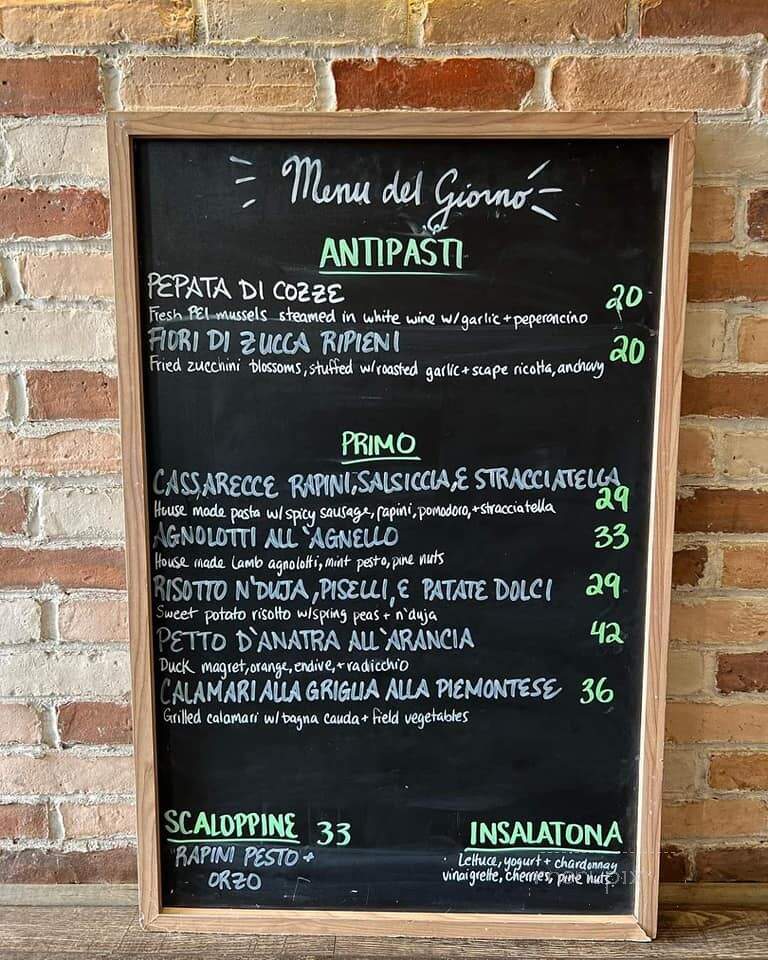 Menu del Giorno
ANTIPASTI
PEPATA DI COZZE 20
Fresh PEI mussels steamed in white wine w/garlic + peperoncino
FIORI DI ZUCCA RIPIENI 20
Fried zucchini blossoms, stuffed w/roasted garlic + scape ricotta, anchovy
PRIMO
CASSARECCE RAPINI, SALSICCIA, E STRACCIATELLA
29
House made pasta w/ spicy sausage, rapini, pomodoro, + stracciatella
AGNOLOTTI ALL'AGNELLO 33
House made lamb agnolotti, mint pesto, pine nuts
RISOTTO N'DUJA, PISELLI, E PATATE DOLCI 29
Sweet potato risotto w/spring peas + n'duja
PETTO D'ANATRA ALL'ARANCIA 42
Duck magret, orange, endive, + radicchio
CALAMARI ALLA GRIGLIA ALLA PIEMONTESE 36
Grilled calamari w/ bagna cauda + field vegetables
SCALOPPINE 33
RAPINI PESTO +
ORZO
INSALATONA
Lettuce, yogurt + chardonnay
vinaigrette, cherries, pine nuts
menupix